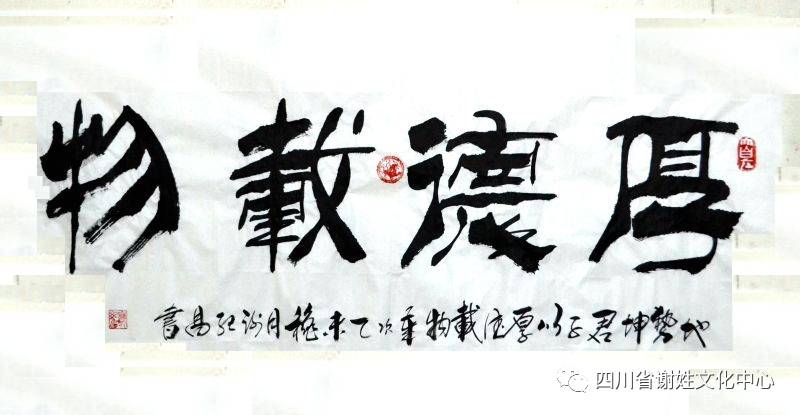 厚德載物
地勢坤君子以厚德載物歲次乙未月謝昌書
四川省谢姓文化中心